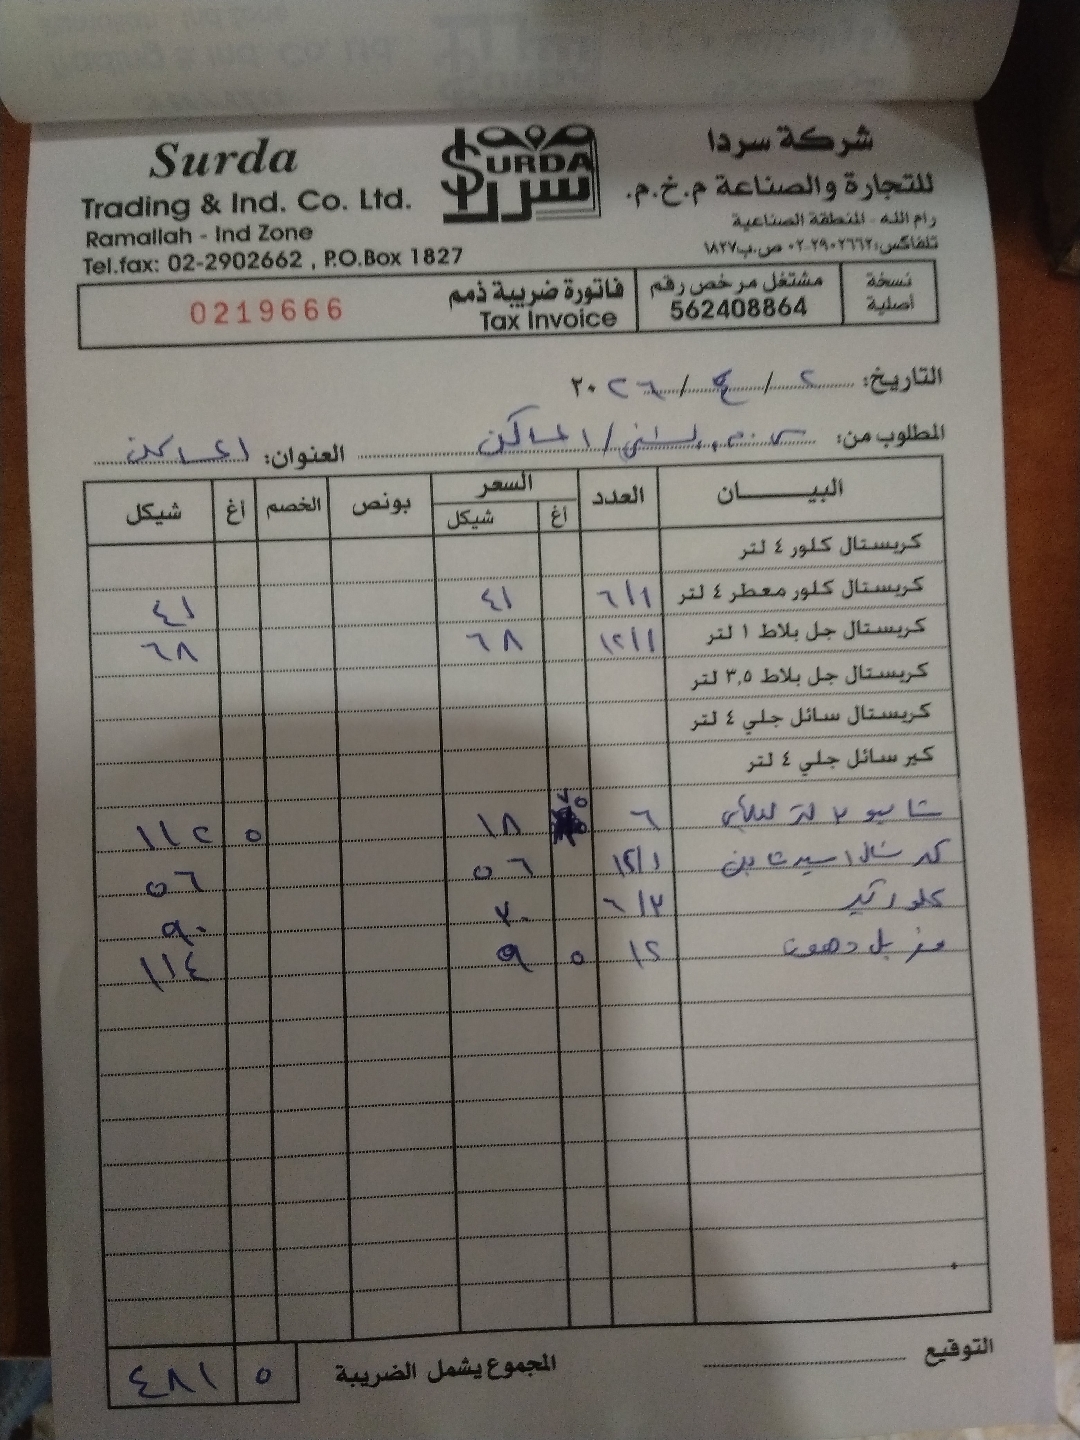 Surda
Trading & Ind. Co. Ltd.
Ramallah - Ind Zone
Tel.fax: 02-2902662 , P.O.Box 1827
SURDA
سردا
شركة سردا
للتجارة والصناعة م.خ.م.
رام الله - المنطقة الصناعية
تلفاكس: ٠٢-٢٩٠٢٦٦٢ ص.ب ١٨٢٧
نسخة أصلية
مشتغل مرخص رقم 562408864
فاتورة ضريبة ذمم
Tax Invoice
0219666
التاريخ: ٢ / ٤ / ٢٠٢٦
المطلوب من: العنوان:
البيــــــان العدد السعر بونص الخصم أغ شيكل
أغ شيكل
كريستال كلور ٤ لتر
كريستال كلور معطر ٤ لتر ٦/١ ٤١ ٤١
كريستال جل بلاط ١ لتر ١٢/١ ٦٨ ٦٨
كريستال جل بلاط ٣,٥ لتر
كريستال سائل جلي ٤ لتر
كير سائل جلي ٤ لتر
شامبو ٢ لتر ٦ ٧٥ ١٨ ٥ ١١٢
١٢/١ ٥٦ ٥٦
كلور ٦/٣ ٣٠ ٩٠
مزيل دهون ١٢ ٥ ٩ ١١٤
التوقيع
المجموع يشمل الضريبة ٥ ٤٨١